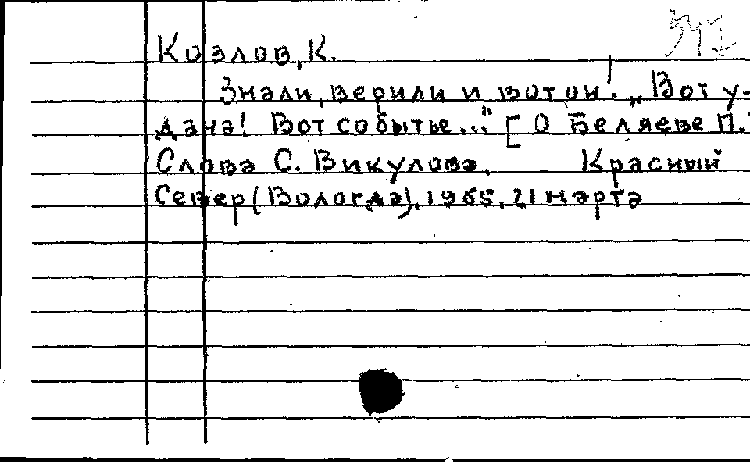 Козлов, К.
Знали, верили и вот он! „Вот у-
дача! Вот событье..." [О Беляеве П.
Слова С. Викулова. Красный
Север (Вологда), 1965, 21 марта